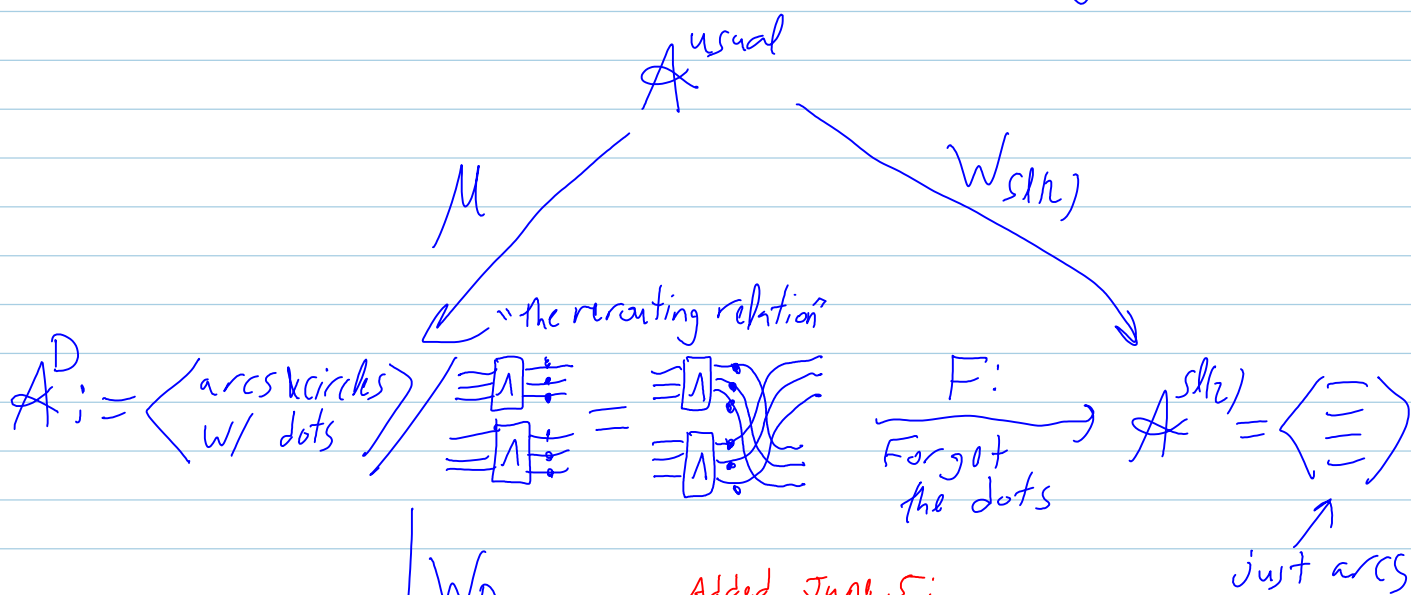 𝒜^usual
μ
W_sl(2)
"the rerouting relation"
𝒜^D := ⟨ arcs & circles w/ dots ⟩ / Λ Λ = Λ Λ F: Forget the dots 𝒜^sl(2) = ⟨ ⟩
just arcs
Added June 5: